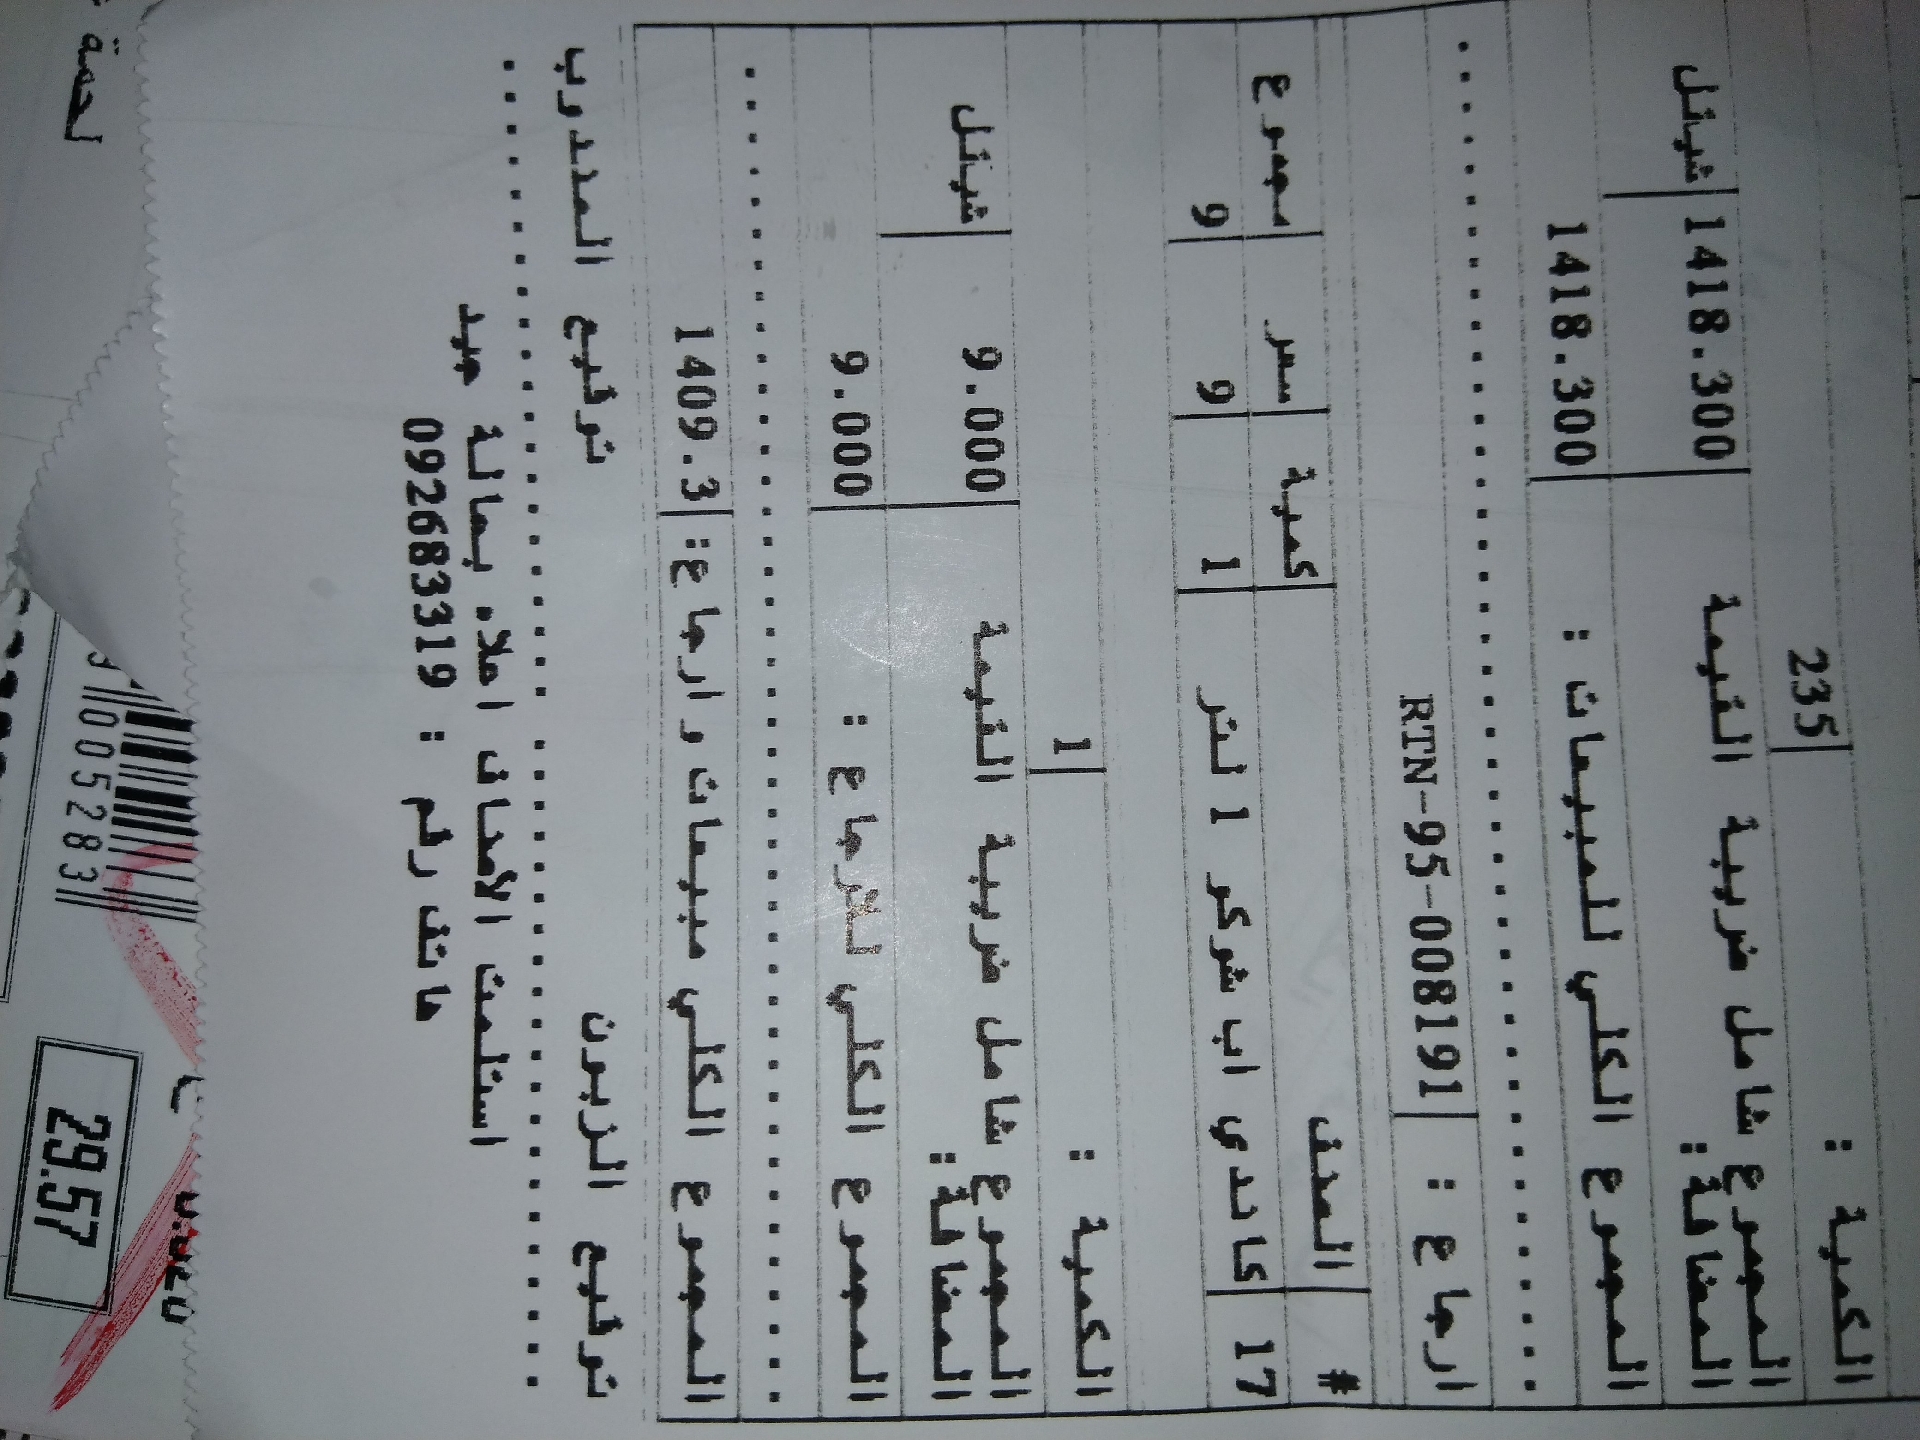 الكمية : 235
المجموع شامل ضريبة القيمة المضافة: 1418.300 شيقل
المجموع الكلي للمبيعات : 1418.300
ارجاع : RTN-95-008191
# الصنف كمية سعر مجموع
17 كاندي اب شوكر 1 لتر 1 9 9
الكمية : 1
المجموع شامل ضريبة القيمة المضافة: 9.000 شيقل
المجموع الكلي للارجاع : 9.000
المجموع الكلي مبيعات و ارجاع: 1409.3
توقيع الزبون توقيع المندوب
استلمت الأصناف اعلاه بحالة جيد
هاتف رقم : 092683319
005283
29.57